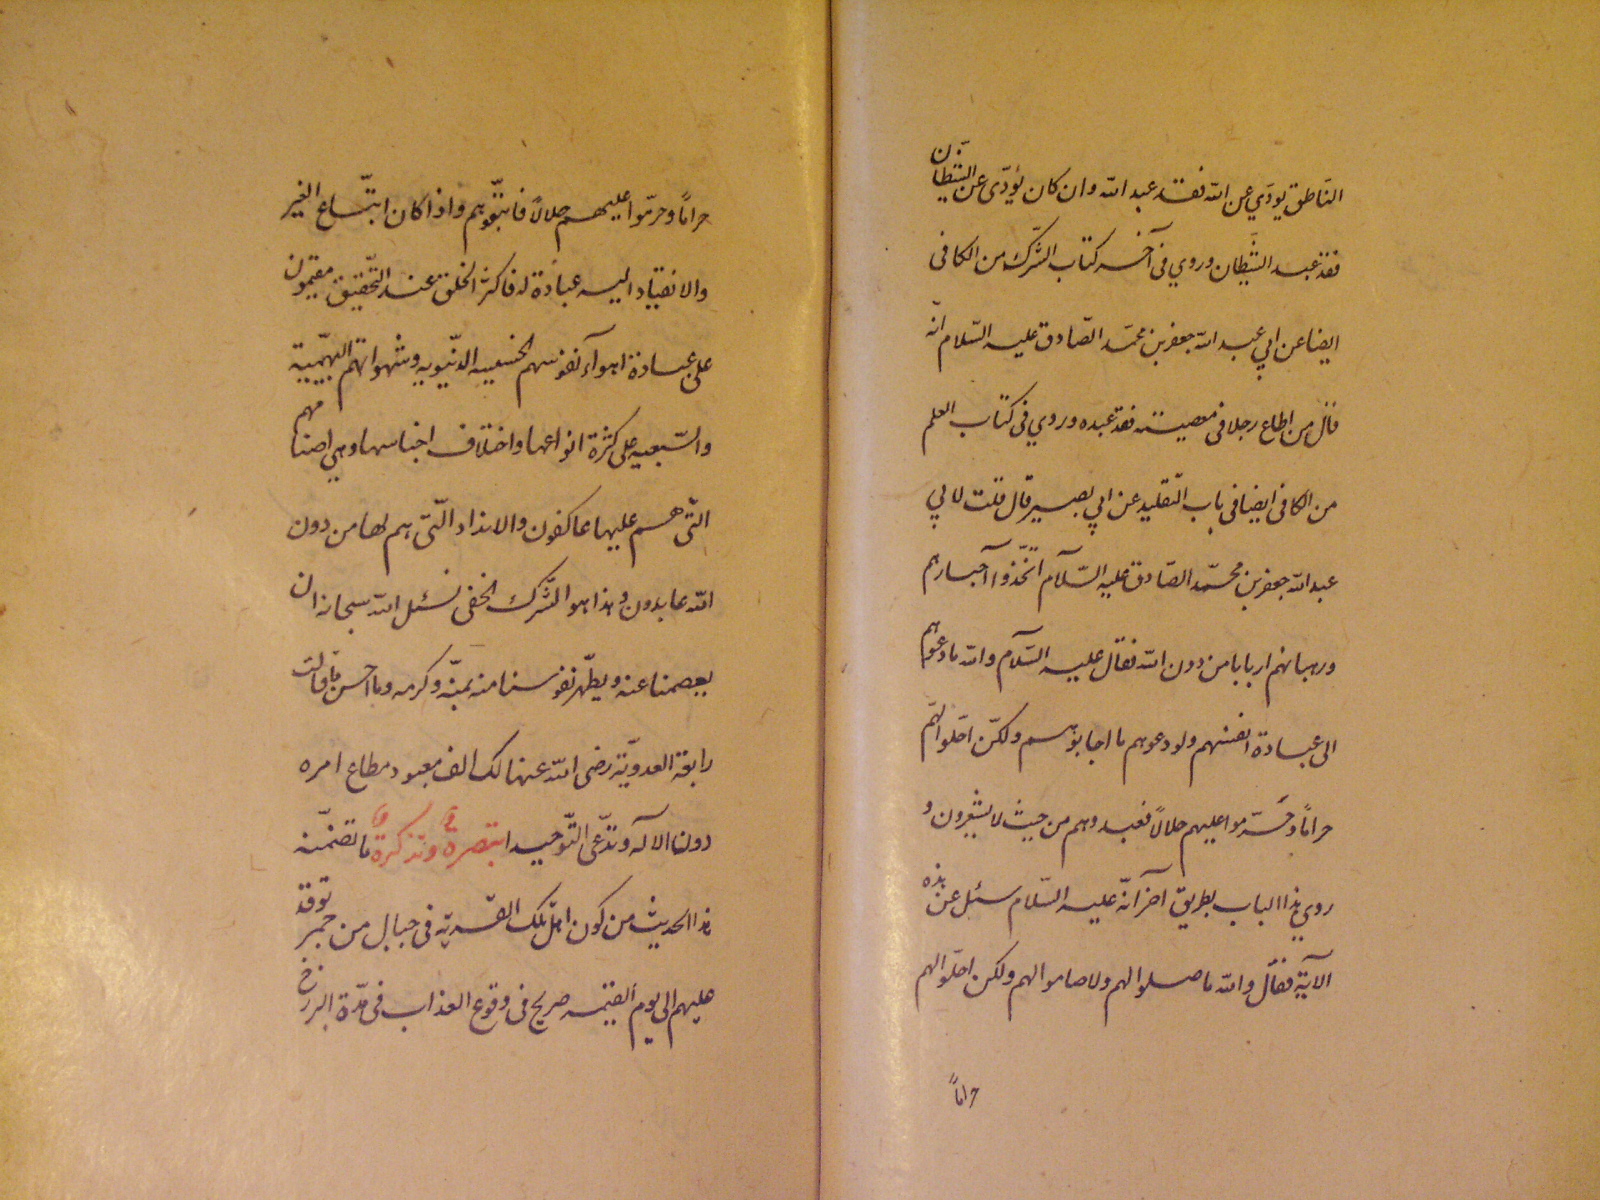 الناطق يودّي عن الله فقد عبد الله وان كان يؤدّى عن الشيطان
فقد عبد الشيطان وروي في آخر كتاب الشّرك من الكافى
ايضا عن ابي عبد الله جعفر بن محمّد الصّادق عليه السّلام انّه
قال من اطاع رجلا فى معصيته فقد عبده وروي فى كتاب العلم
من الكافى ايضا فى باب التقليد عن ابي بصير قال قلت لابي
عبد الله جعفر بن محمّد الصّادق عليه السّلام اتّخذوا احبارهم
ورهبانهم اربابا من دون الله فقال عليه السّلام والله ما دعوهم
الى عبادة انفسهم ولو دعوهم ما اجابوهم ولكن احلّوا لهم
حراماً وحرّموا عليهم حلالاً فعبدوهم من حيث لا يشعرون و
روي هذا الباب بطريق آخر انّه عليه السّلام سئل عن هذه
الآية فقال والله ما صلوا لهم ولا صاموا لهم ولكن احلّوا لهم
حراماً
حراماً وحرّموا عليهم حلالاً فاتبّعوهم واذا كان اتبّاع الغير
والانقياد اليه عبادة له فاكثر الخلق عند التّحقيق مقيمون
على عبادة اهوآء نفوسهم الخسيسه الدّنيويه وشهواتهم البهيميّة
والسّبعيه على كثرة انواعها واختلاف اجناسها وهي اصنامهم
التّى هم عليها عاكفون والانداد التّى هم لها من دون
الله عابدون وهذا هو الشّرك الخفى نسئل الله سبحانه ان
يعصمنا عنه ويطهّر نفوسنا منه بمنّه وكرمه وما احسن ما قالت
رابعة العدويّة رضى الله عنها لك الف معبود مطاع امره
دون الاله وتدّعى التّوحيدا تبصرة وتذكرة ما تضمّنه
هذا الحديث من كون اهل تلك القرية فى جبال من جمر توقد
عليهم الى يوم القيمه صريح فى وقوع العذاب فى مدّة البرزخ